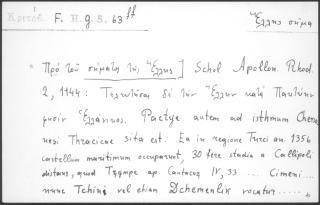 F. H. g. S. 63 ff Ἕλλης σῆμα
" Πρὸ τοῦ σήματος τῆς Ἕλλης ] Schol Apollon. Rhod.
2, 1144: Τελευτῆσαι δὲ τὴν Ἕλλην κατὰ Πακτύην
φησὶν Ἑλλάνικος. Pactye autem ad isthmum Cherso
nesi Thracicae sita est. Ea in regione Turci an. 1356
castellum maritimum occuparunt, 30 fere stadia a Callipoli
distans, quod Τζύμπε ap. Cantacuz IV, 33 ... Cimeni ...
nunc Tchini vel etiam Dchemenlik vocatur ....